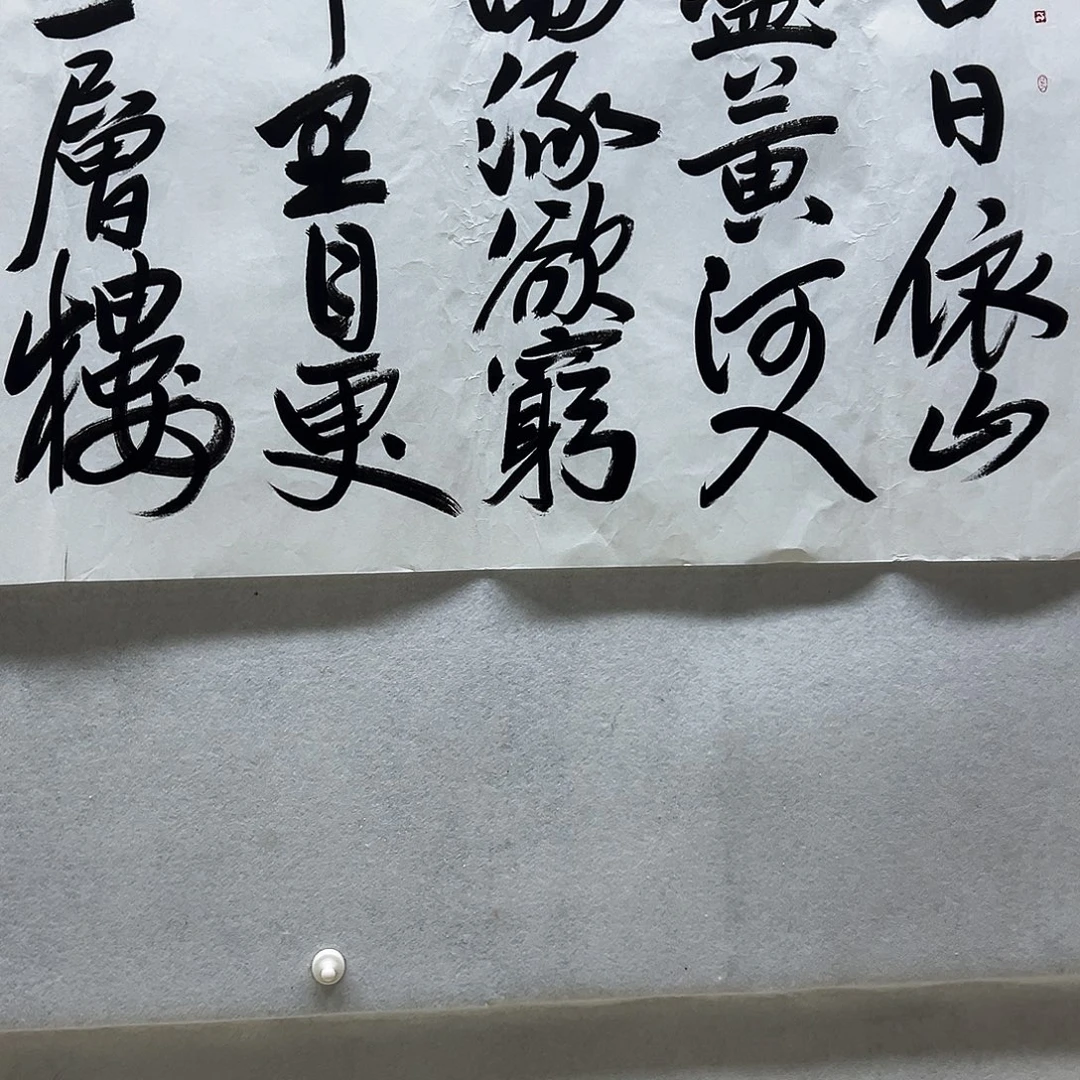 日依山
盡黃河入
流欲窮
里目更
一層樓